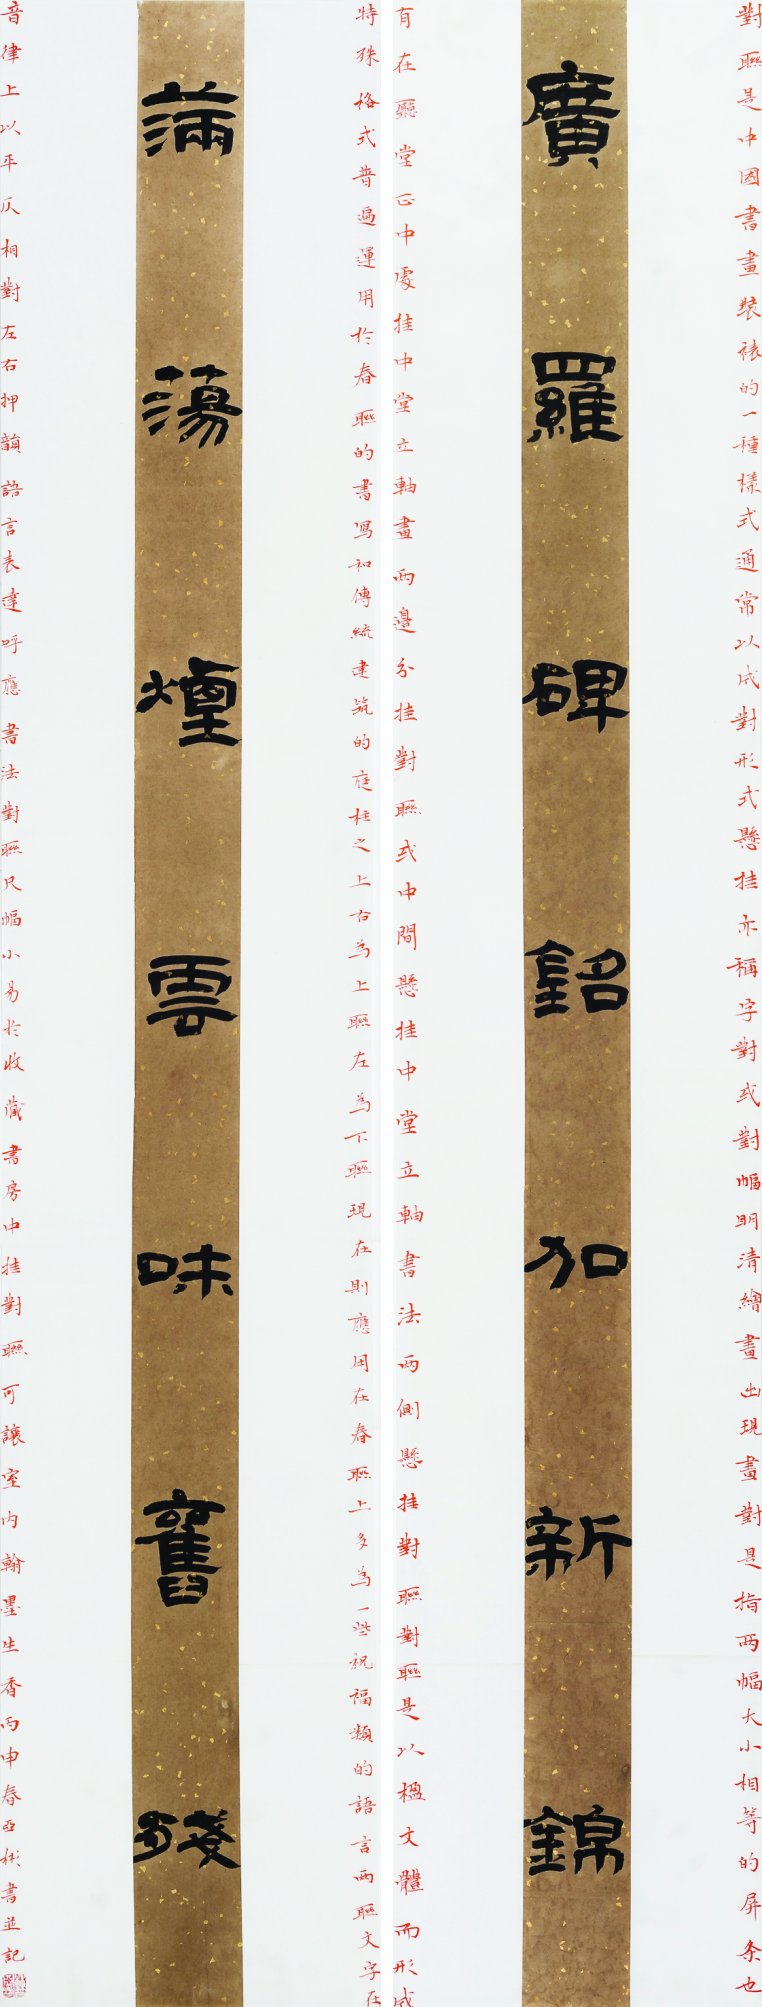 對聯是中國書畫裝裱的一種樣式通常以成對形式懸挂亦稱字對或對幅明清繪畫出現畫對是指兩幅大小相等的屏条也
廣羅碑銘加新錦
有在廳堂正中處挂中堂立軸畫兩邊分挂對聯或中間懸挂中堂立軸書法兩側懸挂對聯對聯是以楹文體而形成
特殊格式普遍運用於春聯的書寫和傳統建筑的庭柱之上右為上聯左為下聯現在則應用在春聯上多為一些祝福類的語言兩聯文字在
滿蕩煙雲味舊殘
音律上以平仄相對左右押韻語言表達呼應書法對聯尺幅小易於收藏書房中挂對聯可讓室内翰墨生香丙申春亞彬書並記